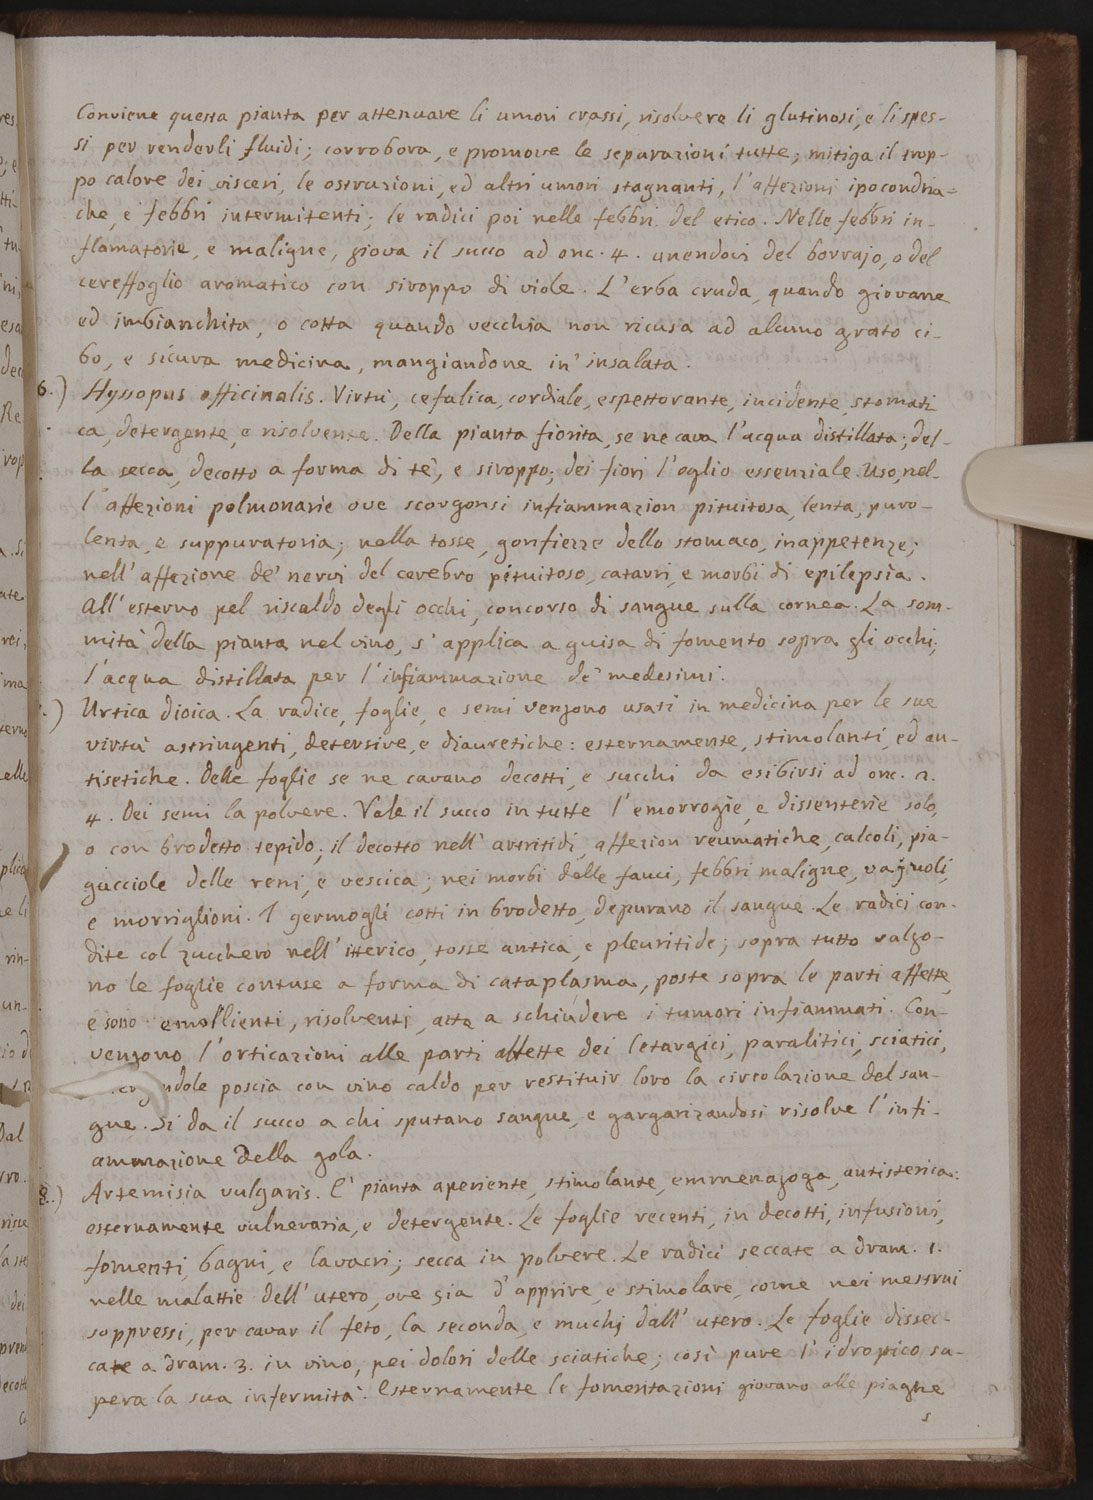 Conviene questa pianta per attenuare li umori crassi, risolvere li glutinosi, e li spes-
si per renderli fluidi; corrobora, e promove le separazioni tutte; mitiga il trop-
po calore dei visceri, le ostruzioni, ed altri umori stagnanti, l'affezioni ipocondria-
che, e febbri intermitenti; le radici poi nelle febbri del etico. Nelle febbri in-
flamatorie, e maligne, giova il succo ad onc. 4. unendovi del borrajo, o del
cereffoglio aromatico con siroppo di viole. L'erba cruda, quando giovane
ed imbianchita, o cotta quando vecchia non ricusa ad alcuno grato ci-
bo, e sicura medicina, mangiandone in' insalata.
6.) Hyssopus officinalis. Virtù, cefalica, cordiale, espettorante, incidente, stomati
ca, detergente, e risolvente. Della pianta fiorita, se ne cava l'acqua distillata; del-
la secca, decotto a forma di tè, e siroppo; dei fiori l'oglio essenziale. Uso, nel-
l'affezioni polmonarie ove scorgonsi infiammazion pituitosa, lenta, puro-
lenta, e suppuratoria; nella tosse, gonfiezze dello stomaco, inappetenze;
nell'affezione de' nervi del cerebro pituitoso, catarri, e morbi di epilepsia.
All'esterno pel riscaldo degli occhi, concorso di sangue sulla cornea. La som-
mità della pianta nel vino, s'applica a guisa di fomento sopra gli occhi;
l'acqua distillata per l'infiammazione de' medesimi.
.) Urtica dioica. La radice, foglie, e semi vengono usati in medicina per le sue
virtù astringenti, detersive, e diauretiche: esternamente, stimolanti, ed an-
tisetiche. Delle foglie se ne cavano decotti, e succhi da esibirsi ad onc. 2.
4. Dei semi la polvere. Vale il succo in tutte l'emorrogie, e dissenterie solo,
o con brodetto tepido; il decotto nell'artritidi, affezion reumatiche, calcoli, pia-
gucciole delle reni, e vescica; nei morbi delle fauci, febbri maligne, vajuoli,
e morriglioni. I germogli cotti in brodetto, depurano il sangue. Le radici con-
dite col zucchero nell'itterico, tosse antica, e pleuritide; sopra tutto valgo-
no le foglie contuse a forma di cataplasma, poste sopra le parti affette,
e sono emollienti, risolventi, atte a schiudere i tumori infiammati. Con-
vengono l'orticazioni alle parti affette dei letargici, paralitici, sciatici,
poscia con vino caldo per restituir loro la circolazione del san-
gue. Si da il succo a chi sputano sangue, e gargarizandosi risolve l'infi-
ammazione della gola.
8.) Artemisia vulgaris. E' pianta aperiente, stimolante, emmenagoga, antisterica:
esternamente vulneraria, e detergente. Le foglie recenti, in decotti, infusioni,
fomenti, bagni, e lavacri; secca in polvere. Le radici seccate a dram. 1.
nelle malattie dell'utero, ove sia d'apprire, e stimolare, come nei mestrui
soppressi, per cavar il feto, la seconda, e muchi dall'utero. Le foglie dissec-
cate a dram. 3. in vino, nei dolori delle sciatiche; così pure l'idropico su-
pera la sua infermità. Esternamente le fomentazioni giovano alle piaghe